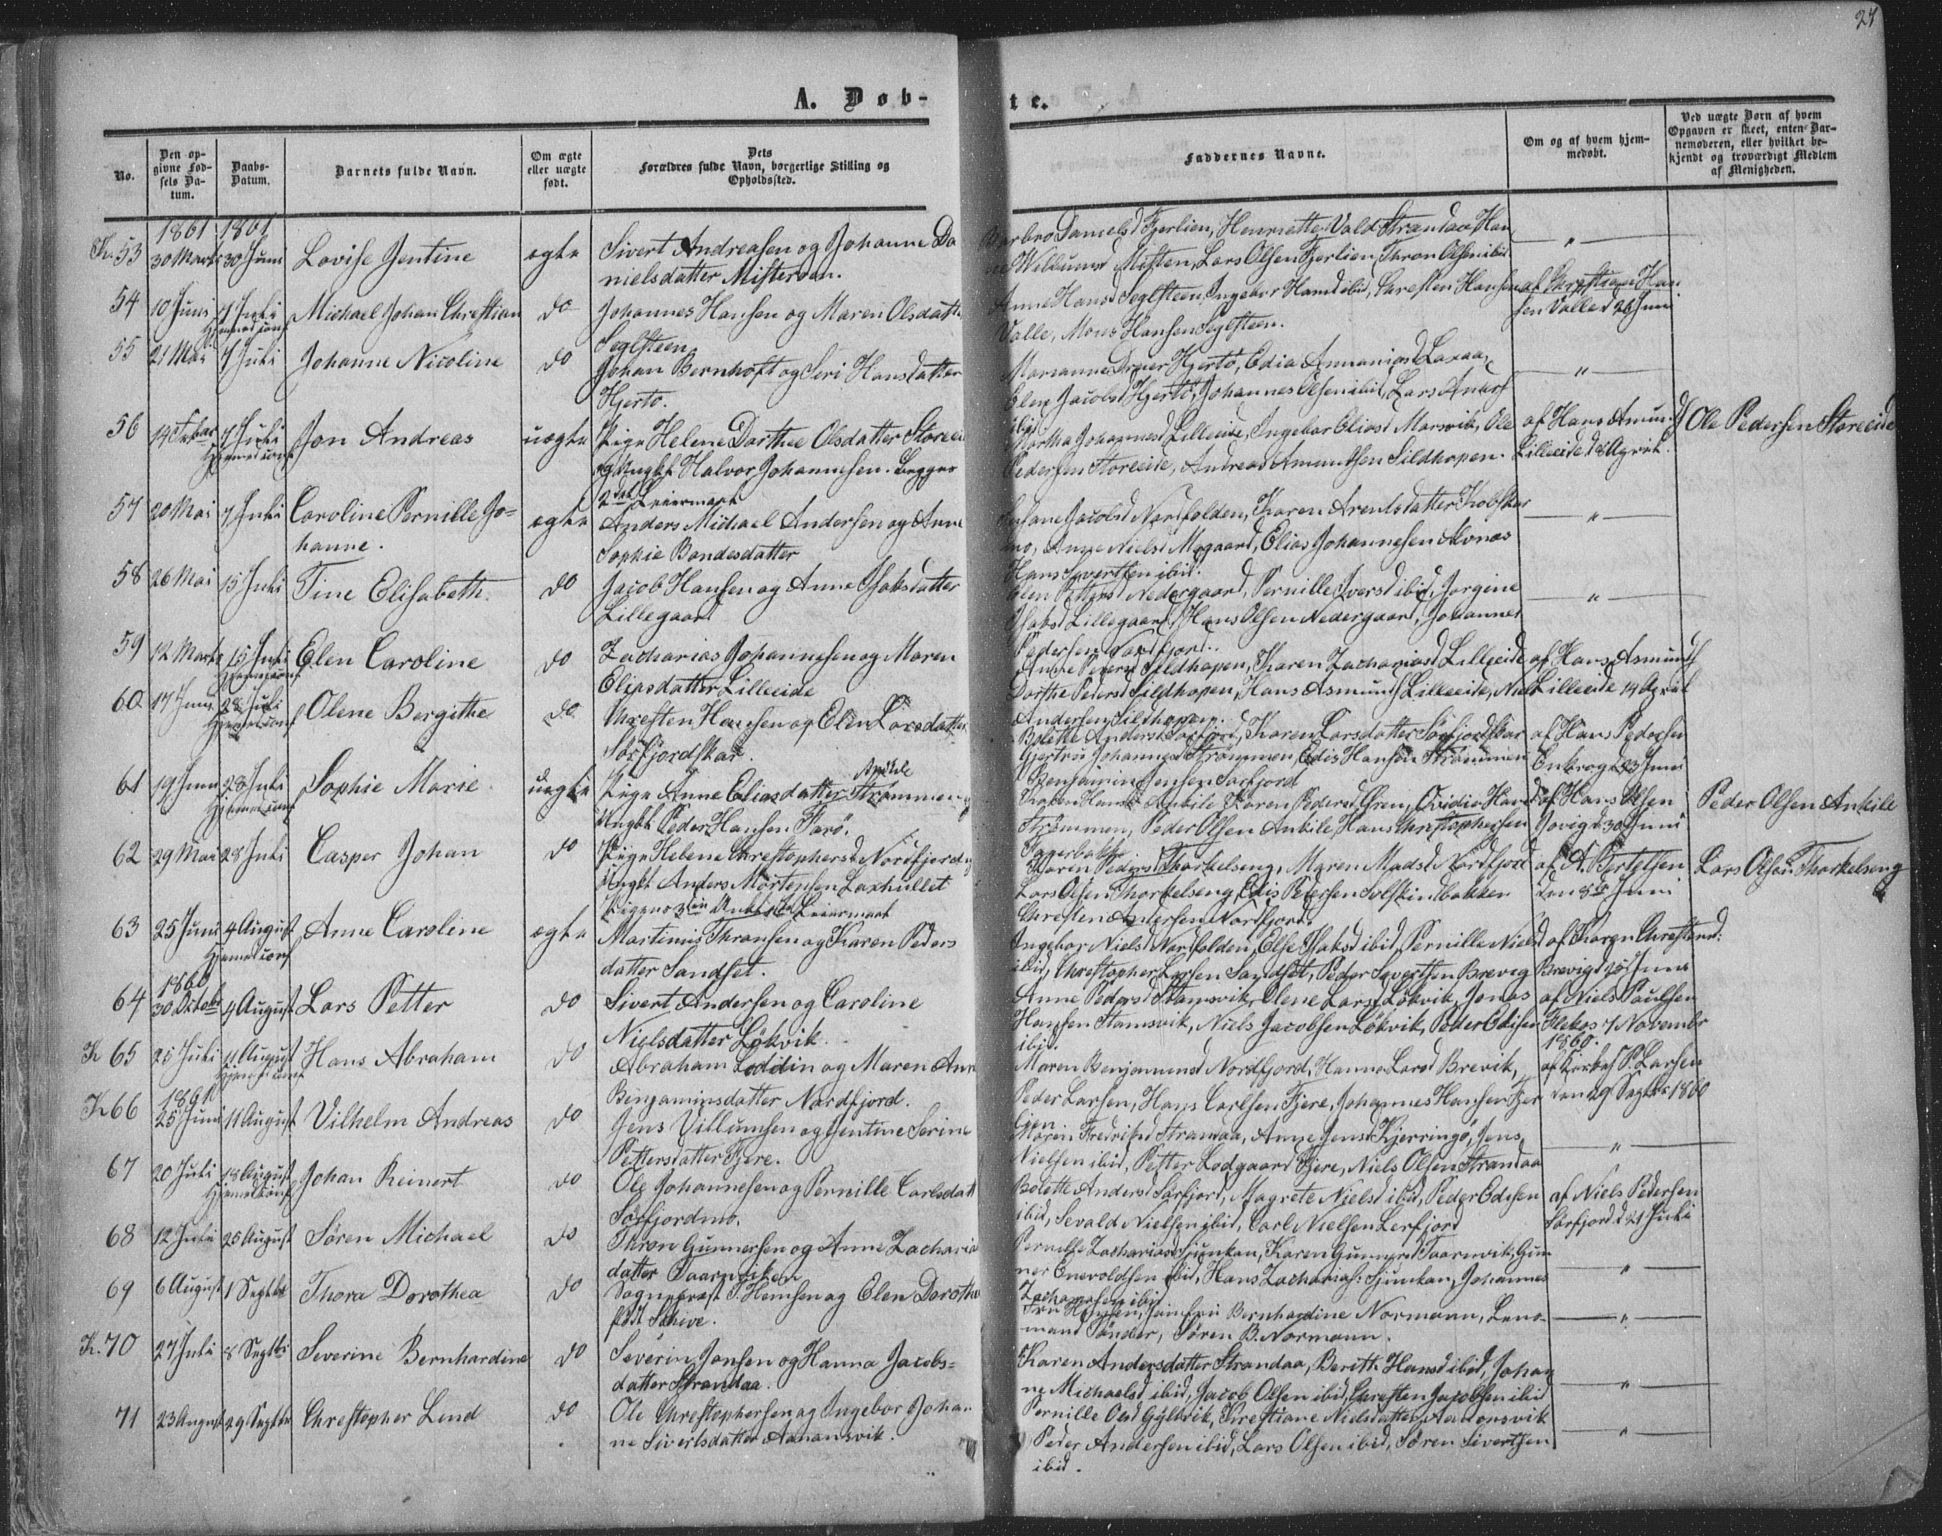 24
A. Døb-
te.
No.
Den op-
givne Fød-
sels Da-
tum.
Daabs-
Datum.
Barnets fulde Navn.
Om ægte
eller uægte
født.
Dets
Forældres fulde Navn, borgerlige Stilling og
Opholdssted.
Faddernes Navne.
Om og af hvem hjem-
medøbt.
Ved uægte Børn af hvem
Opgaven er skeet, enten Bar-
nemoderen, eller hvilket be-
kjendt og troværdigt Medlem
af Menigheden.
1861 1861
K. 53 30 Marts 30 Juni Lovise Jentine ægte Sivert Andreasen og Johanne Da
nielsdatter Misteren.
Barbro Daniels Fjerlien, Henriette Vald Strandaa Han
Willums Misten, Lars Olsen Fjerlien, Thron Olsen ibid
54 10 Juni 7 Juli Michael Johan Christian do Johannes Hansen og Maren Olsdatter
Seglsteen
Anne Hansd Seglsteen, Ingebor Hansd ibid, Christen Hansen
Valle, Mons Hansen Seglsteen.
af Christian Han
sen Valle d 26 Juni
55 21 Mai 7 Juli Johanne Nicoline do Johan Bernhoft og Siri Hansdatter
Hjertø.
Marianne Dreier Hjertø, Edia Annaniasd Laxaa,
Elen Jacobsd Hjertø, Johannes Olsen ibid, Lars Anders
ibid
56 14 Febar 7 Juli Jon Andreas uægte Pige Helene Dorthee Olsdatter Storeeid
og Ungk Halvor Johannesen. Begges
2det Leiermaal
Martha Johannesd Lilleeide, Ingebor Eliasd Marsvik, Ole
Pedersen Storeeide, Andreas Amundsen Sildhopen.
af Hans Amunds
Lilleeide d 18 April.
Ole Pedersen Storeeide
57 20 Mai 7 Juli Caroline Pernille Jo-
hanne.
ægte Anders Michael Andersen og Anne
Sophie Bondesdatter
Jacobsd Nordfolden, Karen Arentsdatter Kobskar
mo, Anne Nielsd Mogaard, Elias Johannesen Avnaas
Hans Sivertsen ibid.
58 26 Mai 15 Juli Tine Elisabeth. do Jacob Hansen og Anne Isaksdatter
Lillegaard
Elen Pettersd Nedergaard, Pernille Iversd ibid, Jorgine
Isaksd Lillegaard, Hans Olsen Nedergaard, Johannes
Pedersen Nordfjord.
59 12 Marts 15 Juli Elen Caroline do Zacharias Johannesen og Maren
Eliasdatter Lilleeide
Anne Pedersd Sildhopen, Karen Zachariasd Lilleeide
Dorthe Pedersd Sildhopen, Hans Asmunds Lilleeide, Niels
Andersen Sildhopen.
af Hans Asmunds
Lilleeide 14 April
60 17 Juni 28 Juli Olene Bergithe do Christen Hansen og Elen Larsdatter
Sørfjordskar.
Bolette Andersd Sørfjord, Karen Larsdatter Sørfjordskar
Gjertru Johannesd Strømmen, Edis Hansen Strømmen
Benjamin Jensen Sørfjord
af Hans Pedersen
Enkrog d 23 Juni
61 19 Juni 28 Juli Sophie Marie. uægte Pige Anne Eliasdatter Strømmen og
Ankile
Ungk Peder Hansen Farø.
Hansd Ankile, Karen Pedersd Øren, Ovidia Hansd
Strømmen, Peder Olsen Ankile, Hans Christophersen
Fagerbakk
af Hans Olsen
Jovig d 30 Juni
Peder Olsen Ankile
62 29 Mai 28 Juli Casper Johan do Pige Helene Christophersd Nordfjord og
Ungk Anders Mortensen Laxhullet
Pigens 3die Leiermaal
Karen Pedersd Thorkelseng, Maren Madsd Nordfjord
Lars Olsen Thorkelseng, Edis Petersen Solskinsbakken
Christen Andersen Nordfjord.
af A. Bertelsen
den 8de Juni
Lars Olsen Thorkelseng
63 25 Juni 4 August Anne Caroline ægte Martinus Thronsen og Karen Peders
datter Sandset.
Ingebor Nielsd Nordfolden, Else Isaksd ibid, Pernille Nielsd
ibid, Christopher Larsen Sandset, Peder Sivertsen Brevig
af Karen Christensd:
Brevig d 30 Juni
1860
64 30 Oktobr 4 August Lars Petter do Sivert Andersen og Caroline
Nielsdatter Løkvik.
Anne Pedersd Stamsvik, Olene Larsd Løkvik, Jonas
Hansen Stamsvik, Niels Jacobsen Løkvik, Peder Edisen
ibid.
af Niels Paulsen
7 Novembr
1860.
K 65 25 Juli 11 August Hans Abraham do Abraham Loddin og Maren Ann
Benjaminsdatter Nordfjord.
Maren Benjaminsd Nordfjord, Hanna Larsd Brevik,
Peder Larsen, Hans Carlsen Fjere, Johannes Hansen Fjer
lien
af P. Larsen
den 29 Septbr 1860
K 66 25 Juni 11 August Vilhelm Andreas do Jens Villumsen og Jentine Serine
Pettersdatter Fjere.
Maren Fredriksd Strandaa, Anne Jensd Kjerringø, Jens
Nielsen ibid, Petter Lodgaard Fjere, Niels Olsen Strandaa
67 20 Juli 18 August Johan Reinert do Ole Johannesen og Pernille Carlsdatt
Sørfjordmo.
Bolette Andersd Sørfjord, Magrete Nielsd ibid, Peder Edisen
ibid, Sevald Nielsen ibid, Carl Nielsen Lerfjord
af Niels Pedersen
Sørfjord d 21 Juli
68 12 Juli 25 August Søren Michael do Thron Gunnersen og Anne Zacharia
datter Taarnviken
Pernille Zachariasd Sjunkan, Karen Gunnersd Taarnvik, Gun
ner Enevoldsen ibid, Hans Zachariass: Sjunkan, Johannes
Zachariasen ibid
69 6 August 1 Septbr Thora Dorothea do Sogneprest S. Hemsen og Elen Dorothea
født Schive.
Bernhardine Normann, Leno-
mand Sønder, Søren B. Normann.
K. 70 27 Juli 8 Septbr Severine Bernhardine do Severin Jensen og Hanna Jacobs-
datter Strandaa.
Karen Andersdatter Strandaa, Berith Hansd ibid, Johan
ne Michaelsd ibid, Jacob Olsen ibid, Christen Jacobsen ibid
71 23 August 29 Septbr Christopher Lind do Ole Christophersen og Ingebor Johan
ne Sivertsdatter Aanonsvik.
Pernille Olsd Gylvik, Kirstiane Nielsdatter Aanonsvik
Peder Andersen ibid, Lars Olsen ibid, Søren Sivertsen
ibid.